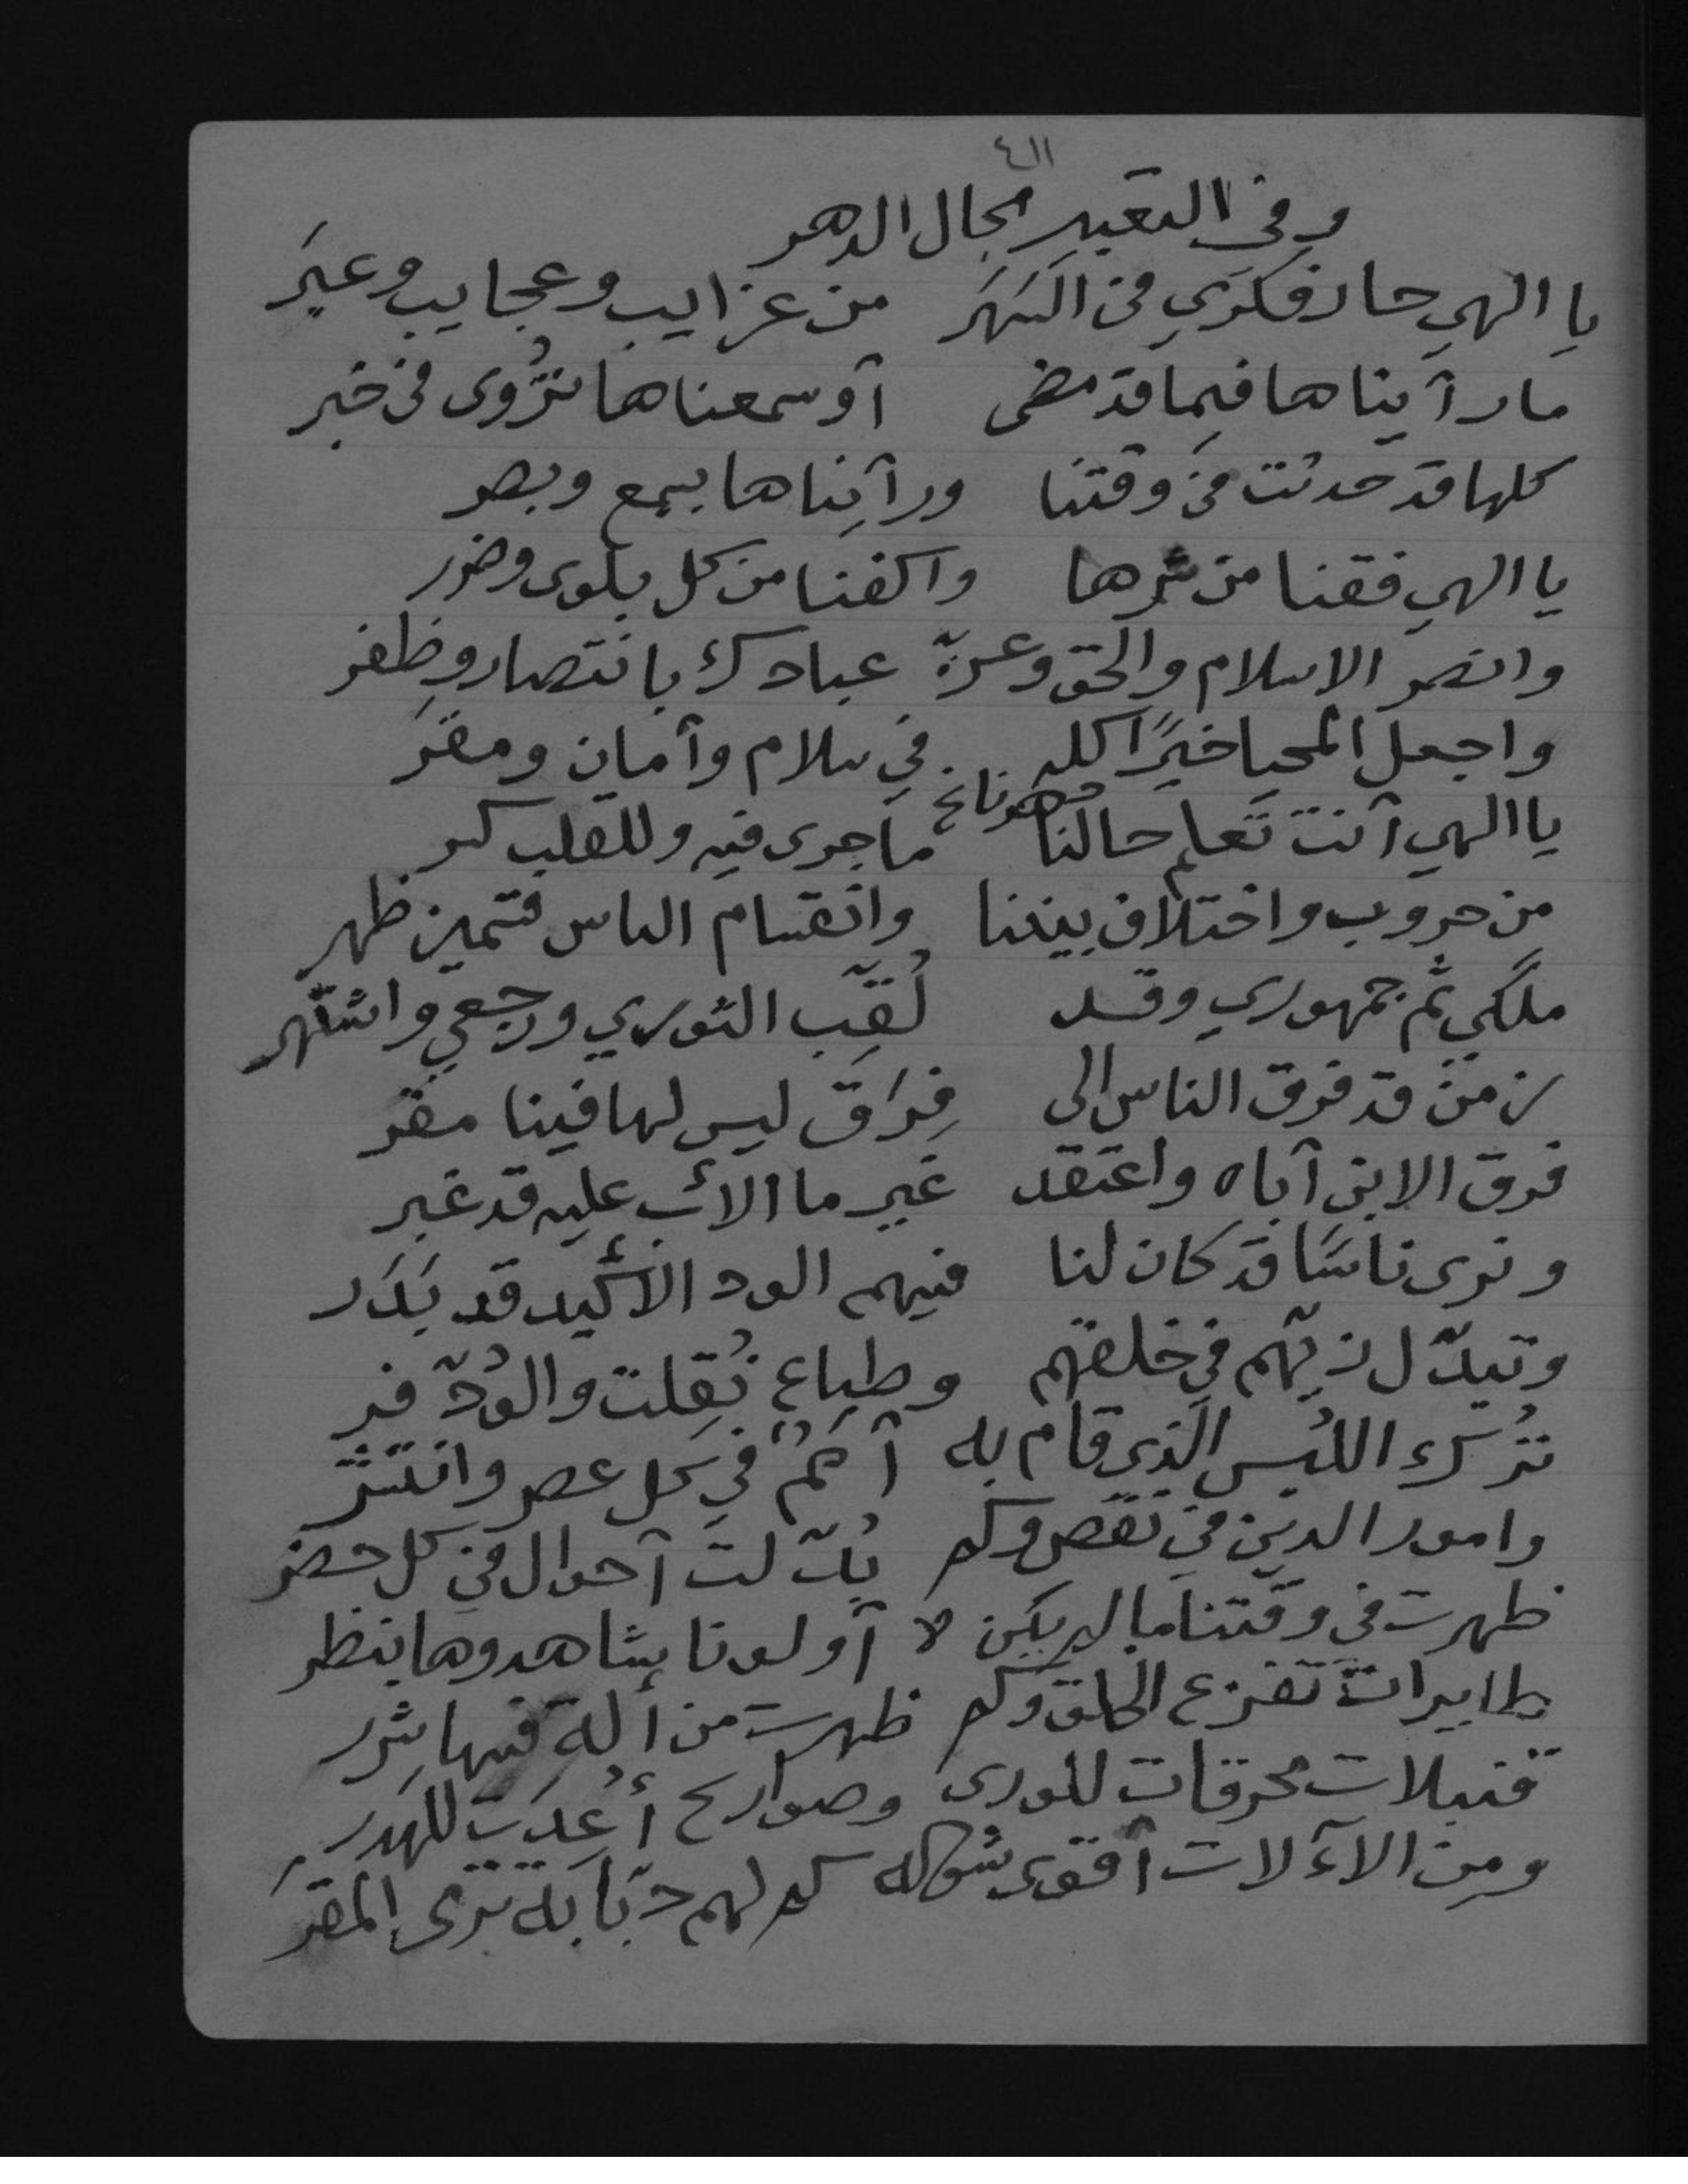 ٤١١
وفي التعبير بحال الدهر
يا الهي حار فكري في السَهَر من غرايب وعجايب وعبَر
ما رآيناها فيما قد مضى آو سمعناها تُرْوى في خبر
كلها قد حدثت في وقتنا ورآيناها بسمع وبصر
يا الهي فقنا من شرها واكفنا من كل بلوى وضرر
وانصر الاسلام والحق وعزّ عبادك بانتصار وظفر
واجعل المحيا خيرًا كله في سلام وآمان ومقرّ
يا الهي آنت تعلم حالنا ما جرى فيه وللقلب كسر
من حروب واختلاف بيننا وانقسام الناس قسمين ظهر
ملكي ثم جمهوري وقد لُقِّب الثوري ورجعي واشتهر
زمن قد فرق الناس الى فِرَاق ليس لها فينا مقر
فرق الابن آباه واعتقد غير ما الأب عليه قد غبر
ونرى ناسًا قد كان لنا فيهم الود الأكيد قد بَدَر
وتبدّل زيّهم في خلقهم وطباع نُقِلت والوُدّ فر
تُرك اللبس الذي قام به آممٌ في كل عصر وانتشر
وامور الدين في نقص وكم بُدّلت آحوال في كل حضر
ظهرت في وقتنا ما لم يكن لا آولونا يشاهدوها بنظر
طايرات تفزع الخلق وكم ظهرت من ألة فيها شرر
قنبلات محرقات للورى وصواريخ أُعِدَت للهدر
ومن الآلات آقوى شوكه كم لهم دبّابة ترى المقرّ